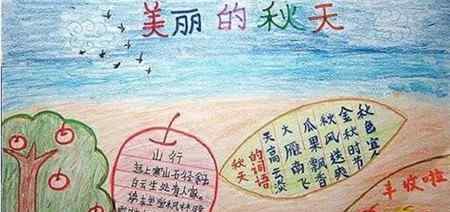 美丽的秋天
山行
远上寒山石径斜
白云生处有人家
停车坐爱枫林晚
秋天的词语
天高云淡
大雁南飞
瓜果飘香
秋风送爽
金秋时节
秋色宜人
丰收啦